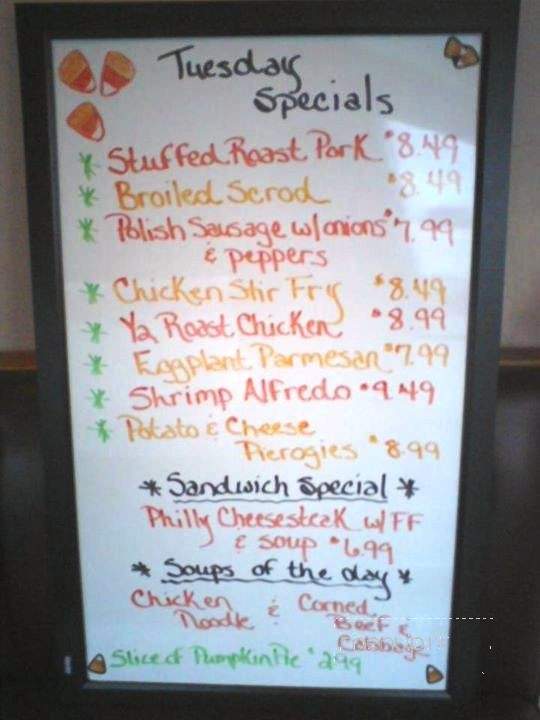 Tuesday
Specials
Stuffed Roast Pork $8.49
Broiled Scrod $8.49
Polish Sausage w/onions $7.99
& peppers
Chicken Stir Fry $8.49
Ya Roast Chicken $8.99
Eggplant Parmesan $7.99
Shrimp Alfredo $9.49
Potato & Cheese
Pierogies $8.99
* Sandwich Special *
Philly Cheesesteak w/FF
& soup $6.99
* Soups of the day *
Chicken & Corned
Noodle Beef &
Cabbage
Slice of Pumpkin Pie $2.99